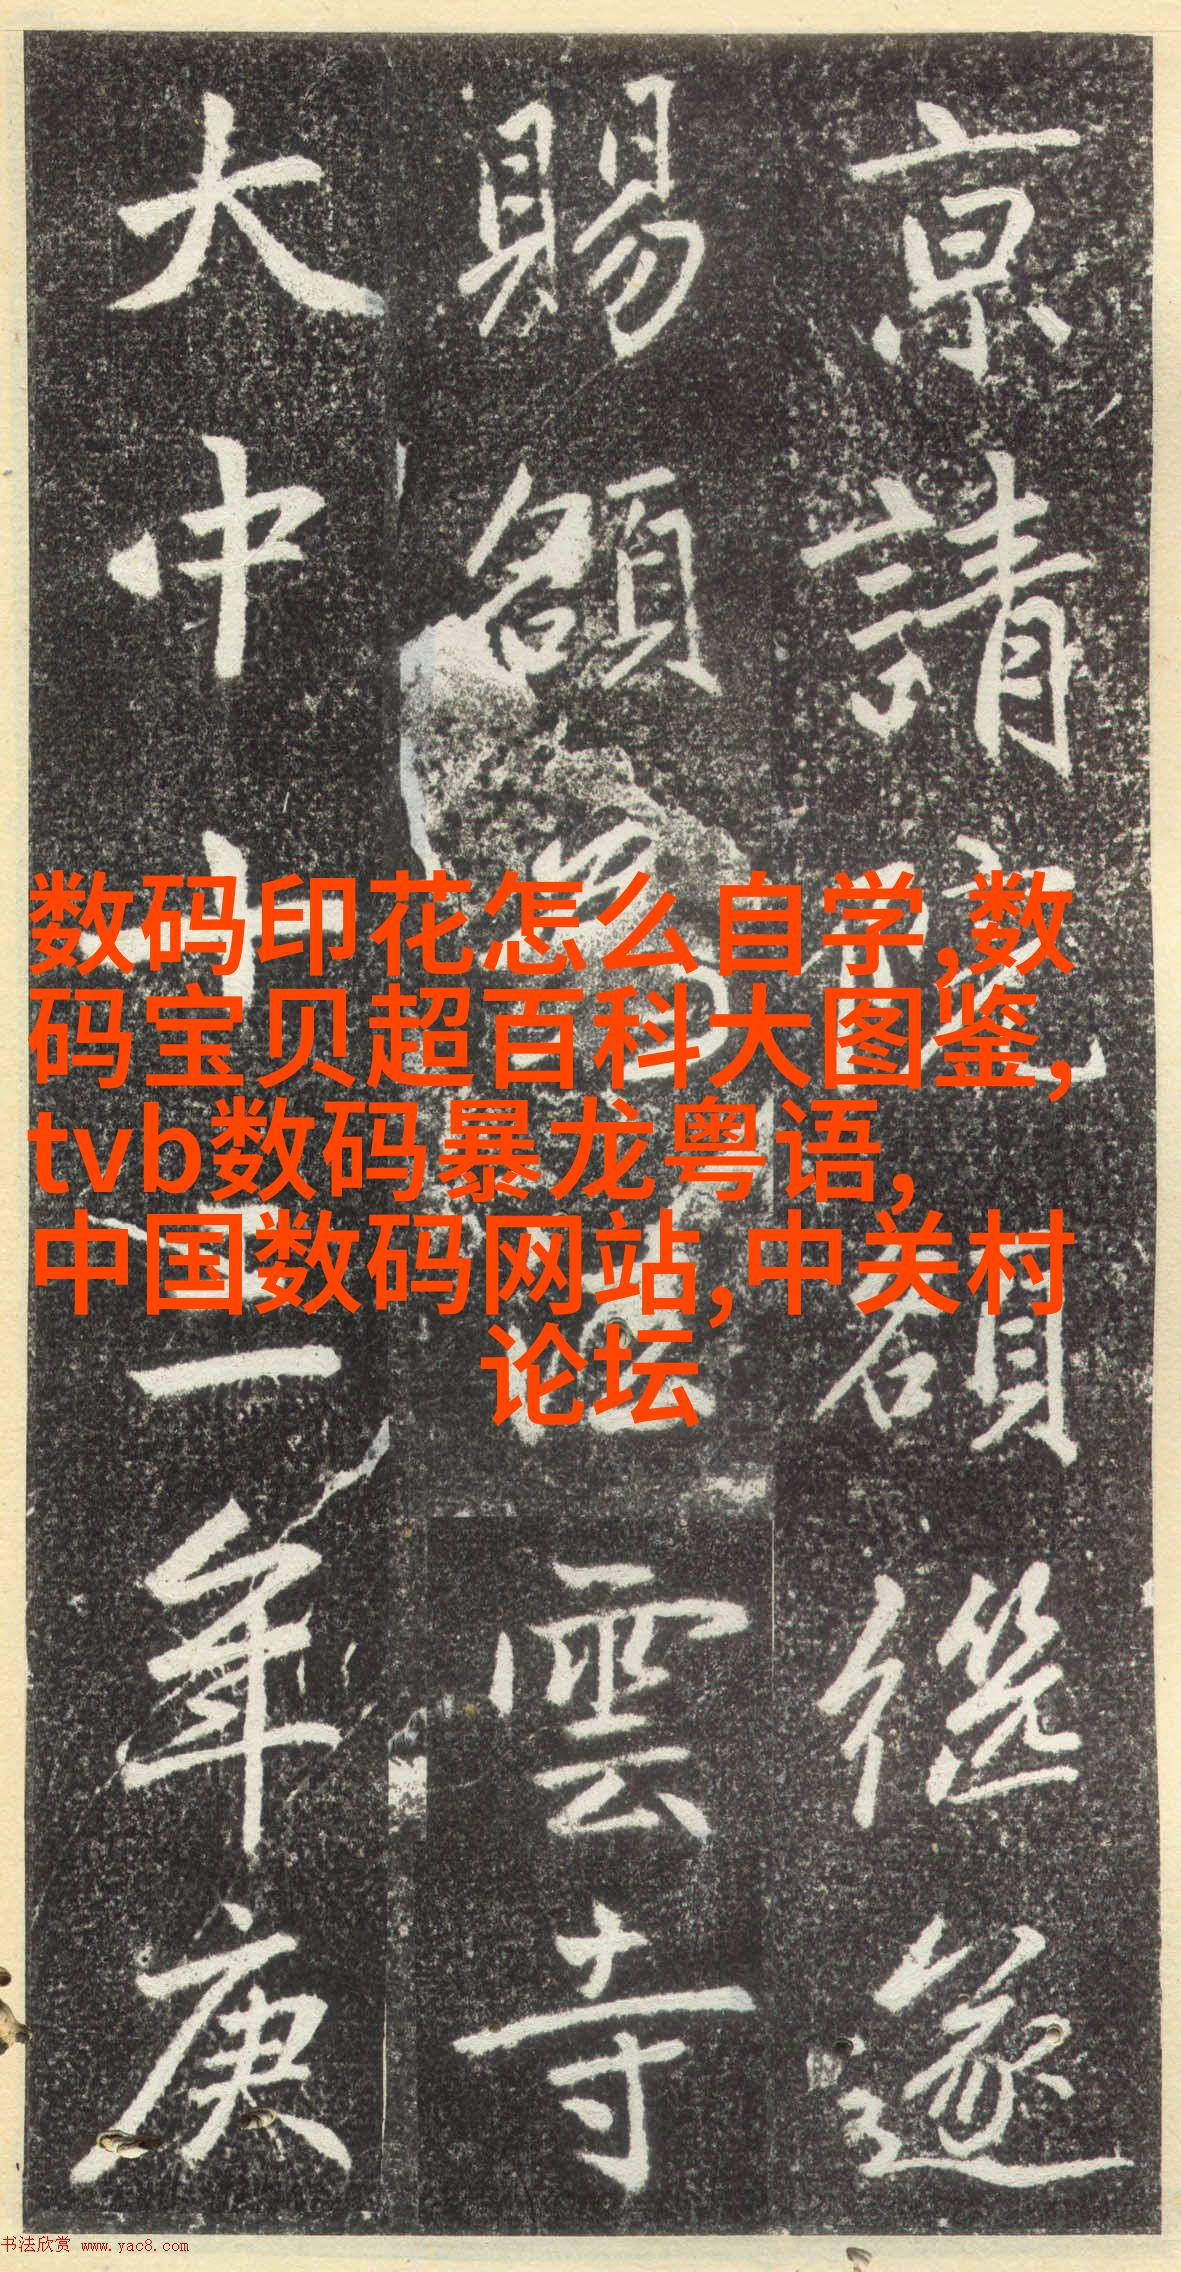 京請額遂
賜額雲寺
大中十二年庚
数码印花怎么自学,数
码宝贝超百科大图鉴,
tvb数码暴龙粤语,
中国数码网站,中关村
论坛
书法欣赏 www.yac8.com